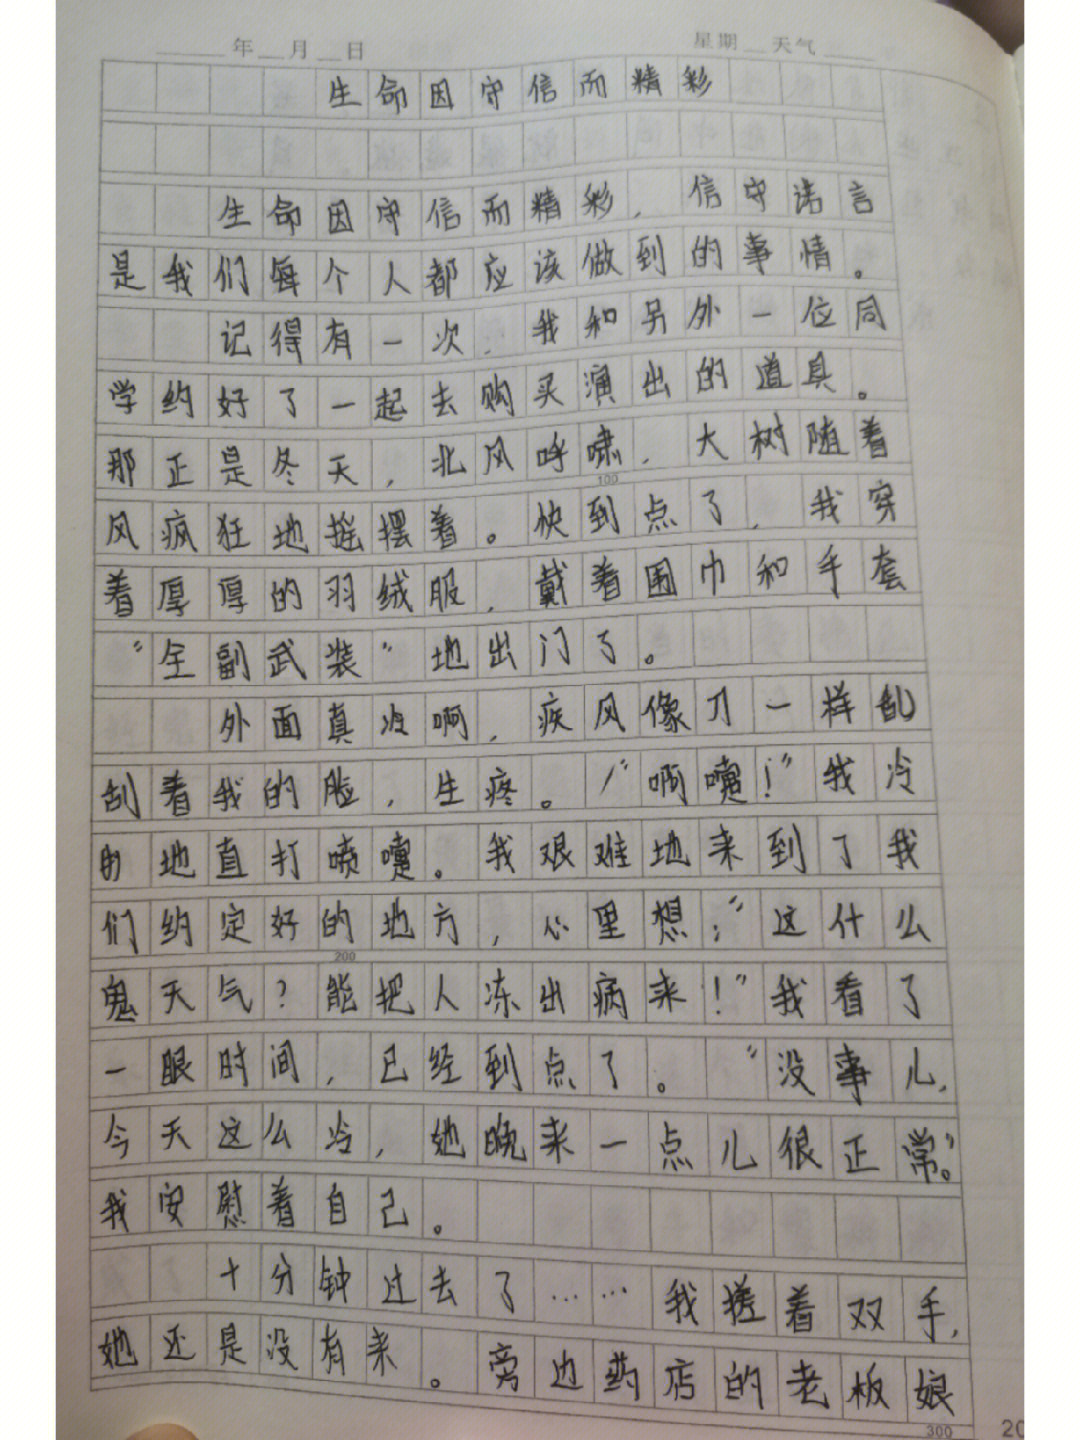 年 月 日 星期 天气
生命因守信而精彩
生命因守信而精彩，信守诺言
是我们每个人都应该做到的事情。
记得有一次，我和另外一位同
学约好了一起去购买演出的道具。
那正是冬天，北风呼啸，大树随着
100
风疯狂地摇摆着。快到点了，我穿
着厚厚的羽绒服，戴着围巾和手套
“全副武装”地出门了。
外面真冷啊，疾风像刀一样乱
刮着我的脸，生疼。“啊嚏！”我冷
的地直打喷嚏。我艰难地来到了我
们约定好的地方，心里想：“这什么
200
鬼天气？能把人冻出病来！”我看了
一眼时间，已经到点了。“没事儿，
今天这么冷，她晚来一点儿很正常。”
我安慰着自己。
十分钟过去了……我搓着双手，
她还是没有来。旁边药店的老板娘
300
20